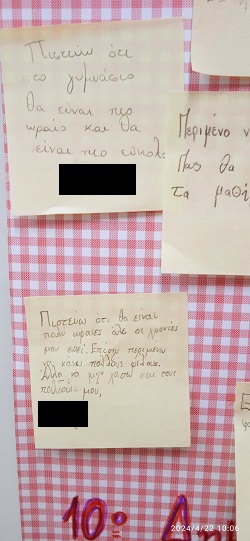 Πιστεύω ότι
το γυμνάσιο
θα είναι πιο
ωραίο και θα
είναι πιο εύκολο
Περιμένο ν
Πως θα
τα μαθή
Πιστεύω οτι θα είναι
πολύ ωραίες όλε οι χρονιές
μου εκεί. Επίσης περιμένω
να κάνω πολλούς φίλους.
Αλλά να μην χάσω και τους
παλιούς μου,
10° Δη
2024/4/22 10:06